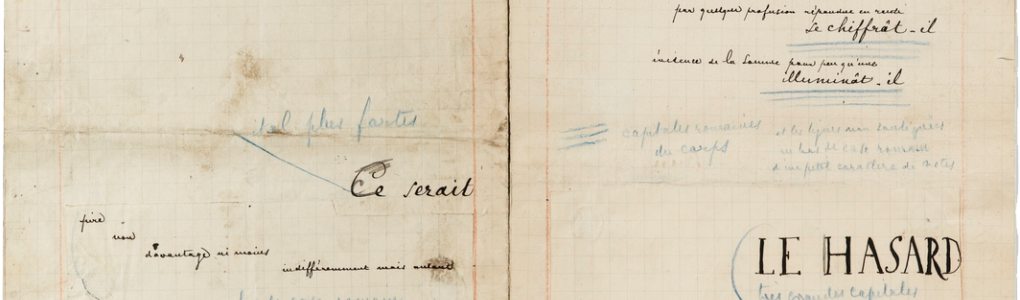 par quelque profusion répandue en rareté
Se chiffrât-il
évidence de la somme pour peu qu'une
illuminât-il
ital plus fortes
Ce serait
pire
non
davantage ni moins
indifféremment mais autant
capitales romaines
du corps
et les lignes non soulignées
en bas de casse romain
d'un petit caractère de notes
LE HASARD
très grandes capitales